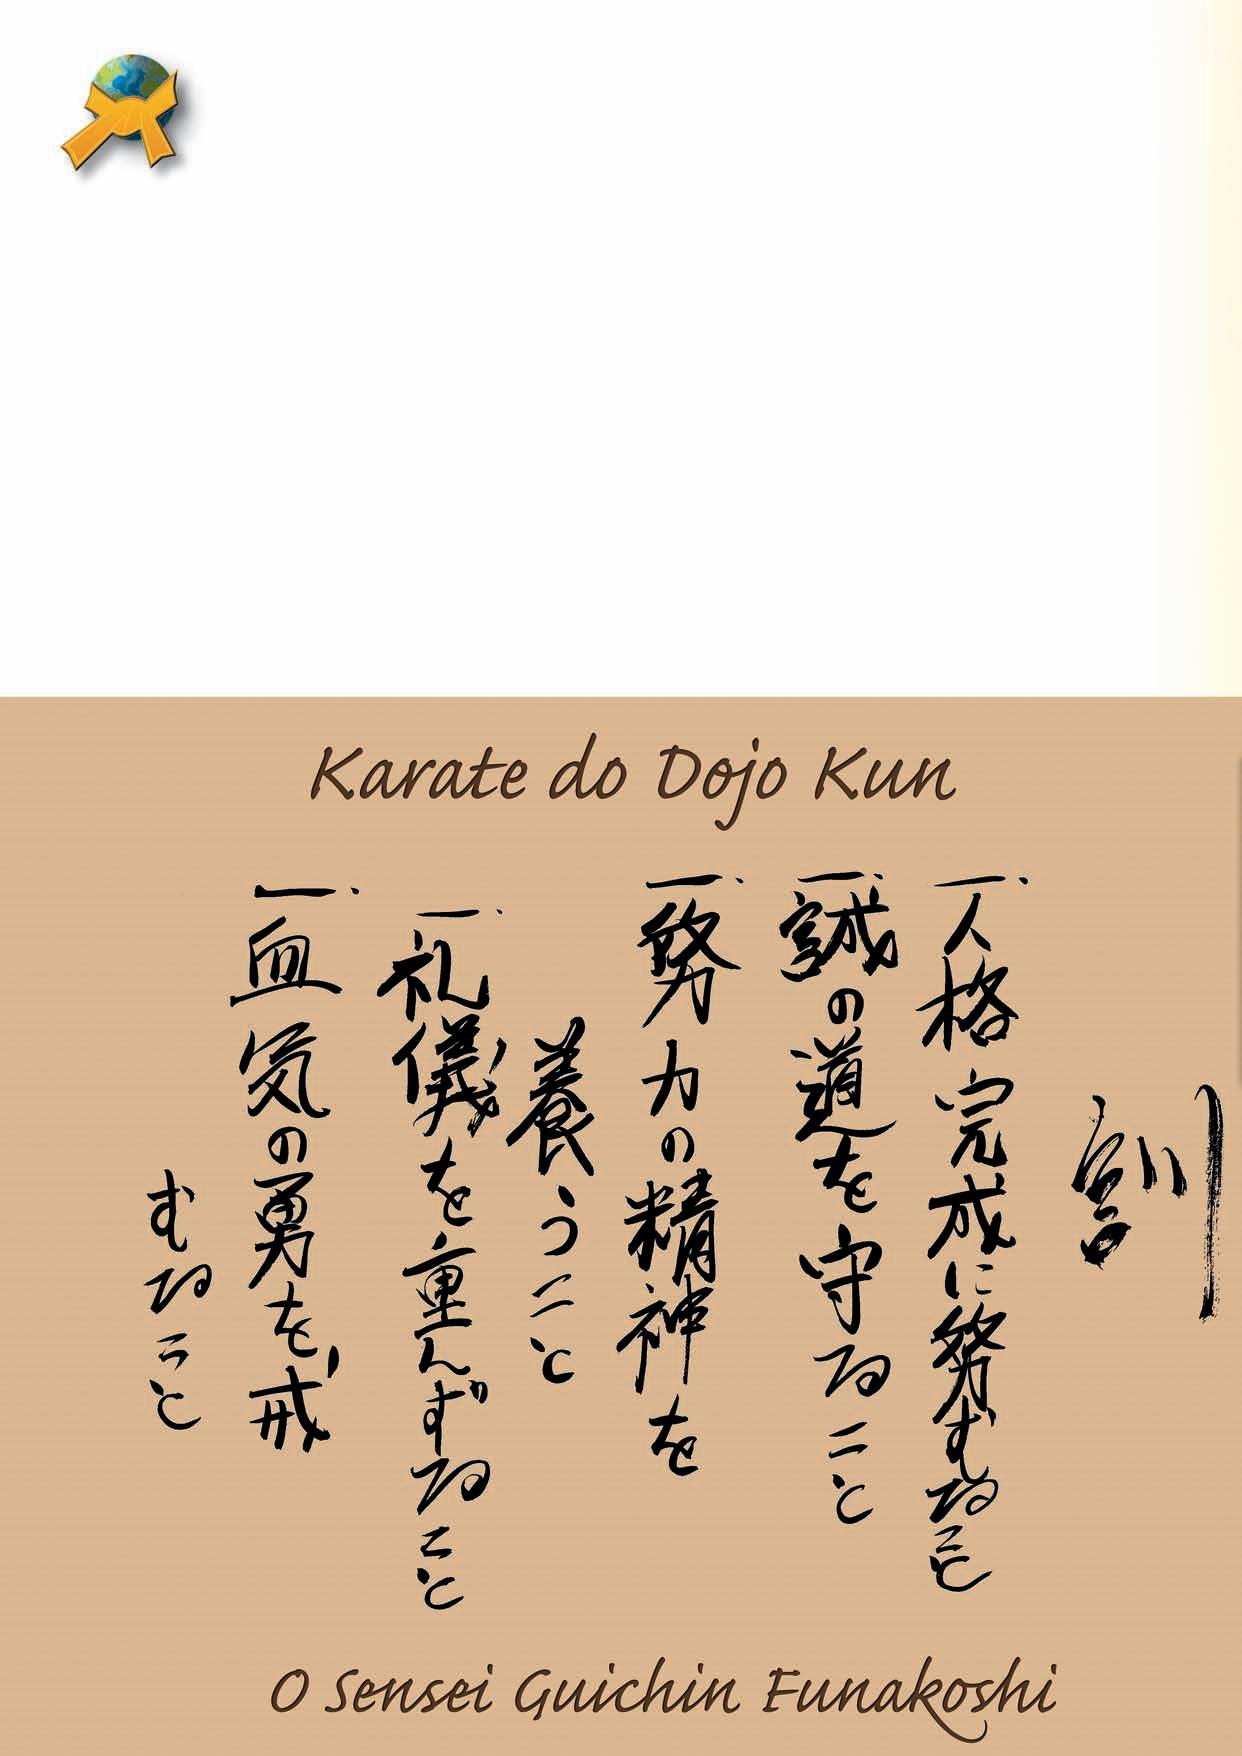 Karate do Dojo Kun
訓
一、人格完成に努むること
一、誠の道を守ること
一、努力の精神を
養うこと
一、礼儀を重んずること
一、血気の勇を戒
むること
O Sensei Guichin Funakoshi